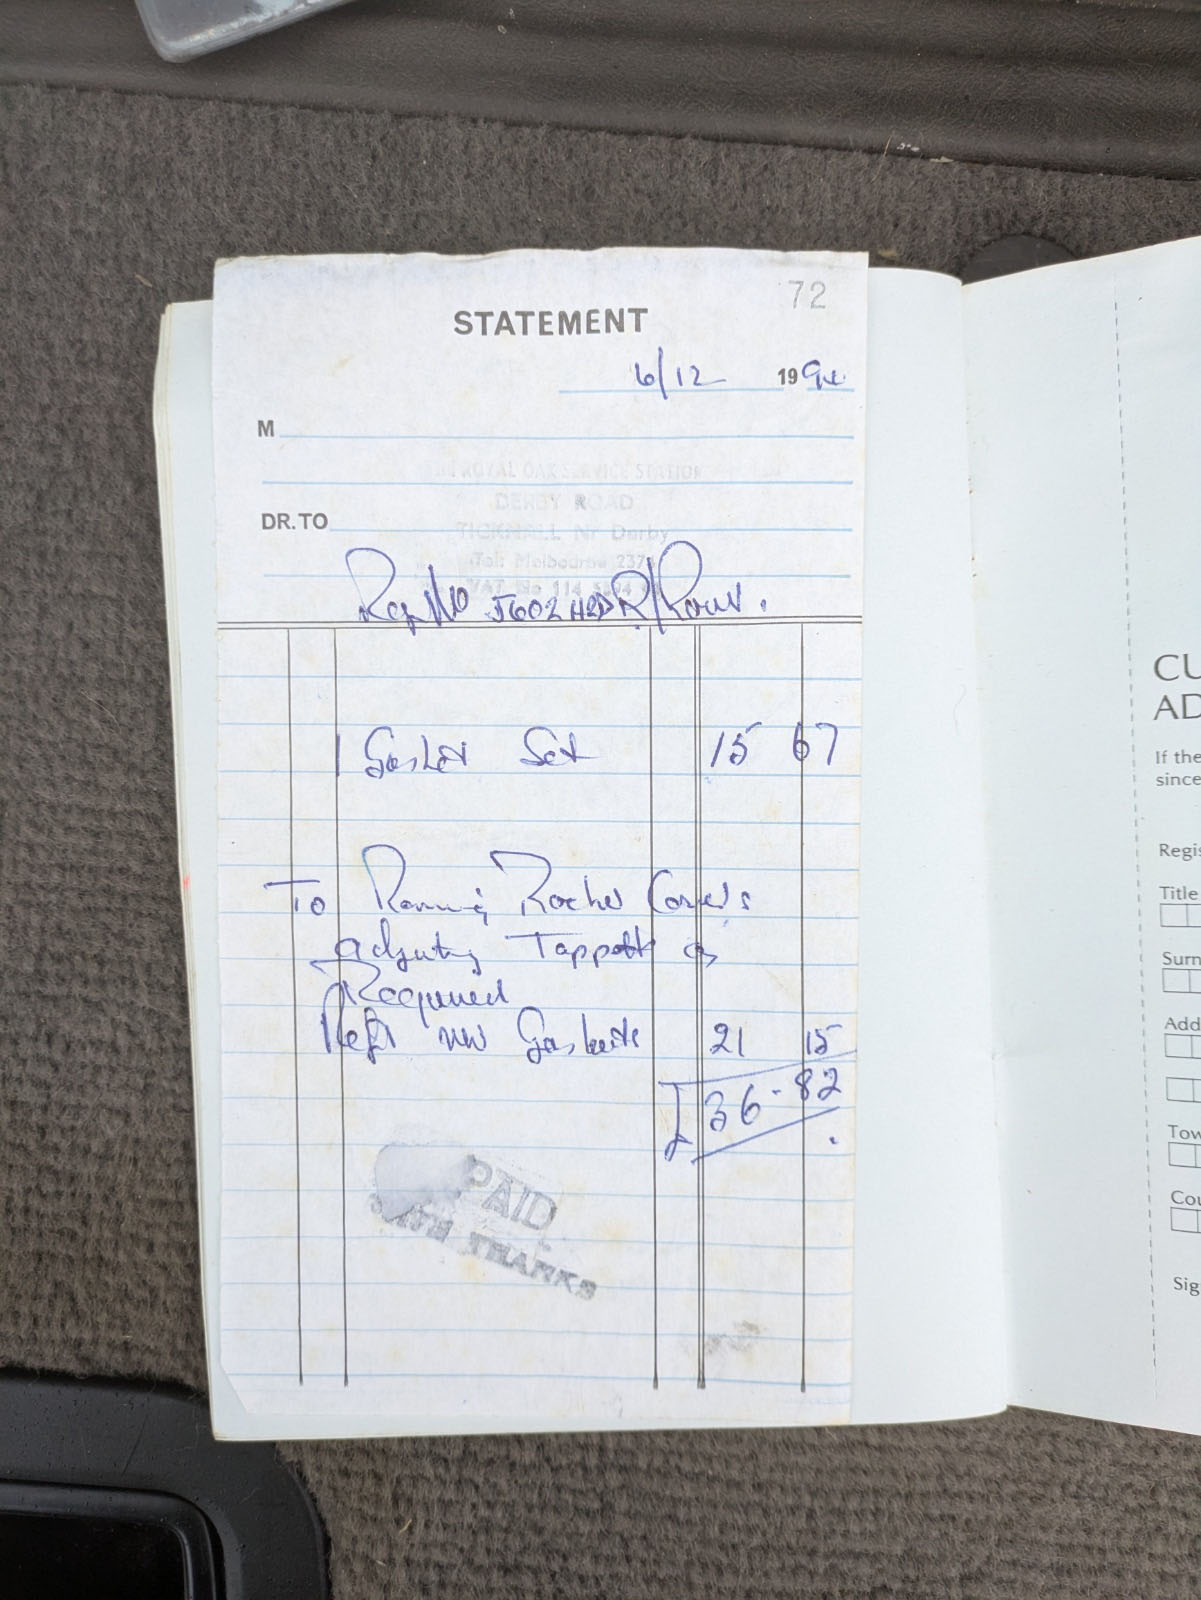 72
STATEMENT
6/12 1994
M
ROYAL OAK SERVICE STATION
DERBY ROAD
DR. TO
TICKNALL Nr Derby
Tel: Melbourne 237
VAT No 114
Reg No J602 HRD R/Rover.
1 Gasket Set 15 67
To Removing Rocker Covers
adjusting Tappetts as
Required
Refit new Gaskets 21 15
£36-82
PAID
WITH THANKS
CU
AD
If the
since
Regis
Title
Surn
Add
Tow
Cou
Sig